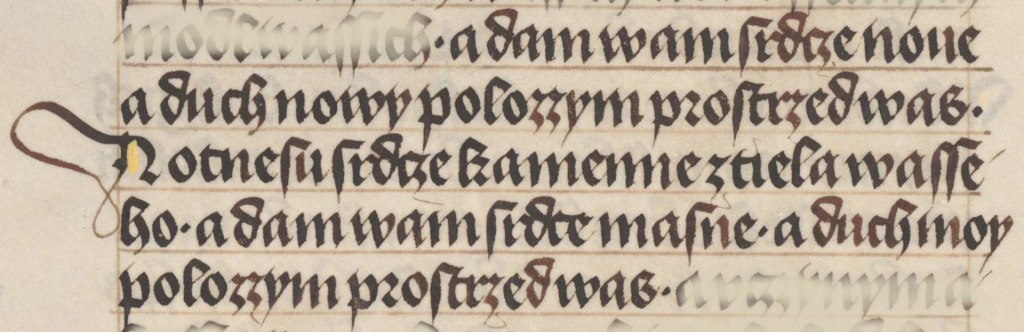 modl wassich · a dam wam srdcze noue
a duch nowy polozzym prostrzed was ·
A otnesu srdcze kamenne z tiela wasse
ho · a dam wam srdce masne · a duch moy
polozzym prostrzed was ·